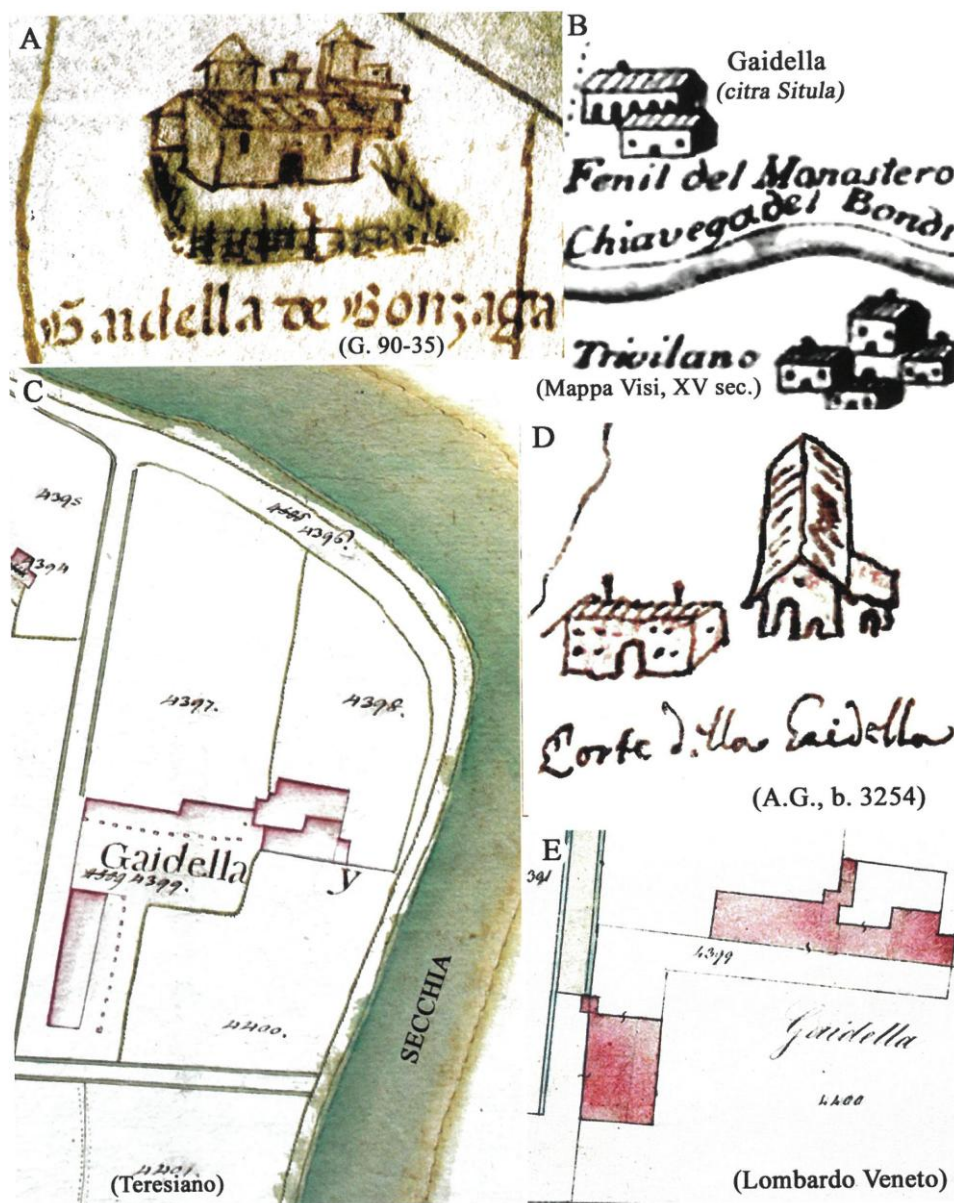 A
Gaidella de Gonzaga
(G. 90-35)
B
Gaidella
(citra Situla)
Fenil del Monastero
Chiavega del Bondi
Trivilano
(Mappa Visi, XV sec.)
C
4395
4394
4396.
4397.
4398.
Gaidella
4399.
y
4400.
SECCHIA
4401.
(Teresiano)
D
Corte della Gaidella
(A.G., b. 3254)
E
4399
Gaidella
4400
(Lombardo Veneto)